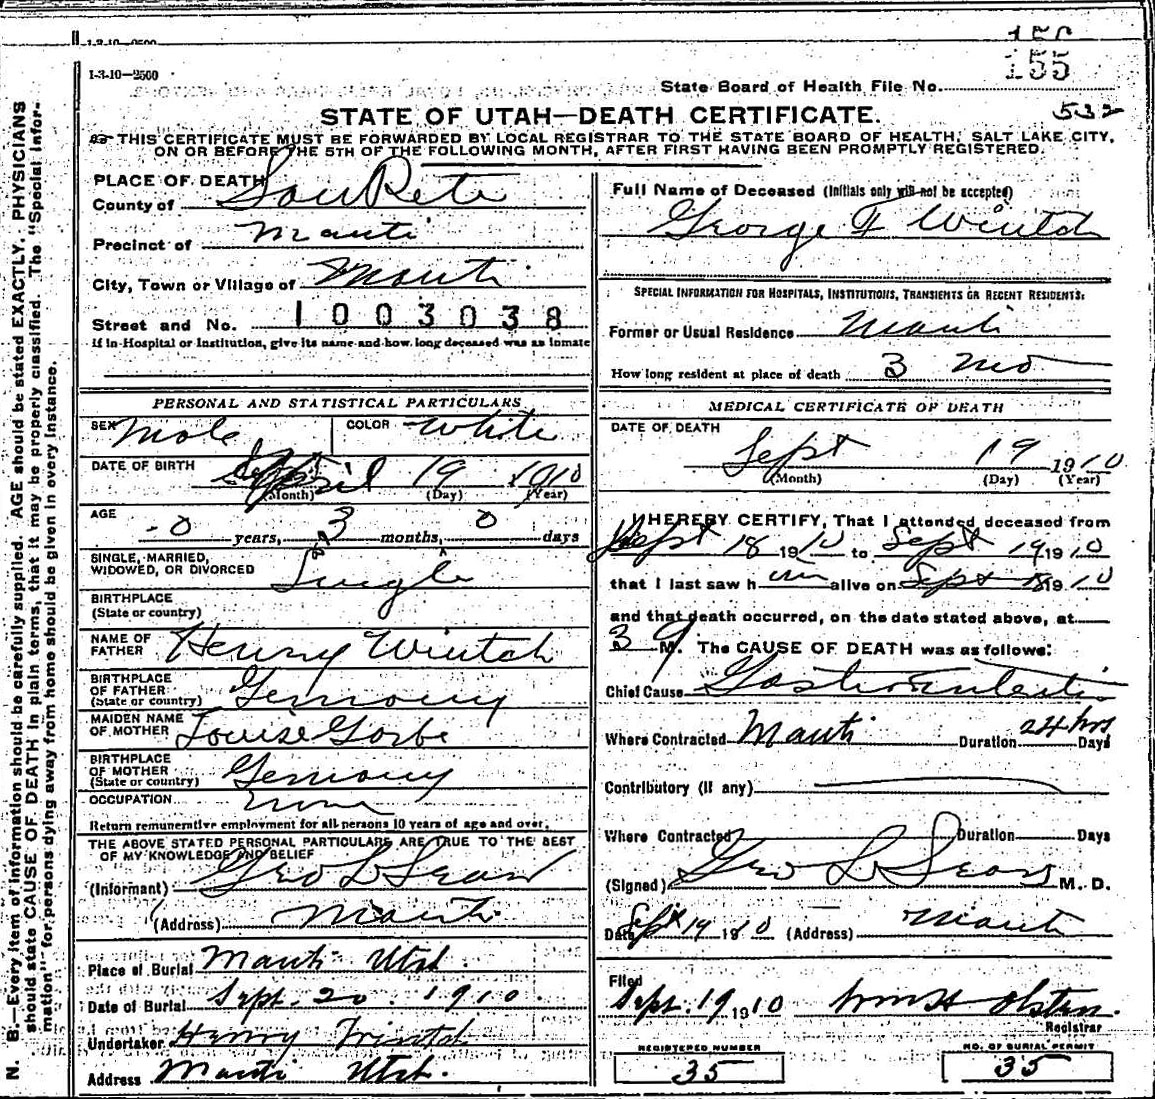 1-3-10—2500
155
State Board of Health File No.
532
STATE OF UTAH—DEATH CERTIFICATE.
THIS CERTIFICATE MUST BE FORWARDED BY LOCAL REGISTRAR TO THE STATE BOARD OF HEALTH, SALT LAKE CITY,
ON OR BEFORE THE 5TH OF THE FOLLOWING MONTH, AFTER FIRST HAVING BEEN PROMPTLY REGISTERED.
N. B.—Every item of information should be carefully supplied. AGE should be stated EXACTLY. PHYSICIANS
should state CAUSE OF DEATH in plain terms, that it may be properly classified. The "Special Infor-
mation" for persons dying away from home should be given in every instance.
PLACE OF DEATH
County of SanPete
Precinct of Manti
City, Town or Village of Manti
Street and No. 1003038
If in Hospital or Institution, give its name and how long deceased was an inmate
PERSONAL AND STATISTICAL PARTICULARS
SEX Male COLOR White
DATE OF BIRTH April 19 1910
(Month) (Day) (Year)
AGE 0 years, 3 months, 0 days
SINGLE, MARRIED,
WIDOWED, OR DIVORCED Single
BIRTHPLACE
(State or country)
NAME OF
FATHER Henry Wintch
BIRTHPLACE
OF FATHER
(State or country) Germany
MAIDEN NAME
OF MOTHER Louise
BIRTHPLACE
OF MOTHER
(State or country) Germany
OCCUPATION none
Return remunerative employment for all persons 10 years of age and over.
THE ABOVE STATED PERSONAL PARTICULARS ARE TRUE TO THE BEST
OF MY KNOWLEDGE AND BELIEF
(Informant) Geo L Sears
(Address) Manti
Place of Burial Manti Utah.
Date of Burial Sept. 20. 1910.
Undertaker Henry Wintch
Address Manti Utah.
Full Name of Deceased (Initials only will not be accepted)
George F Wintch
SPECIAL INFORMATION FOR HOSPITALS, INSTITUTIONS, TRANSIENTS OR RECENT RESIDENTS:
Former or Usual Residence Manti
How long resident at place of death 3 mo
MEDICAL CERTIFICATE OF DEATH
DATE OF DEATH
Sept 19 1910
(Month) (Day) (Year)
I HEREBY CERTIFY, That I attended deceased from
Sept 18 1910 to Sept 19 1910
that I last saw him alive on Sept 18 1910
and that death occurred, on the date stated above, at
3 M. The CAUSE OF DEATH was as follows:
Chief Cause Gastro Enteritis
Where Contracted Manti Duration 24 hrs Days
Contributory (if any)
Where Contracted Duration Days
(Signed) Geo L Sears M. D.
Date Sept 19 1910 (Address) Manti
Filed
Sept. 19 1910 Wm H Olsten.
Registrar
REGISTERED NUMBER
35
NO. OF BURIAL PERMIT
35